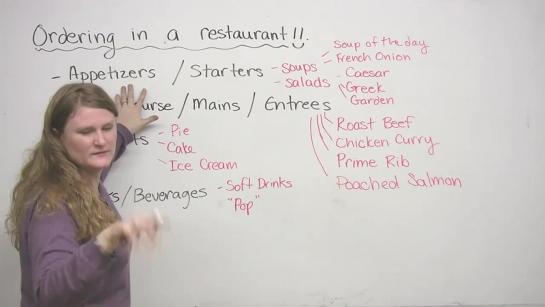 Ordering in a restaurant!!.
- Appetizers / Starters - Soups - Soup of the day
- French Onion
- Salads - Caesar
Greek
Garden
/Mains / Entrees
Roast Beef
Chicken Curry
Prime Rib
Poached Salmon
- Pie
- Cake
- Ice Cream
/Beverages - Soft Drinks
"Pop"